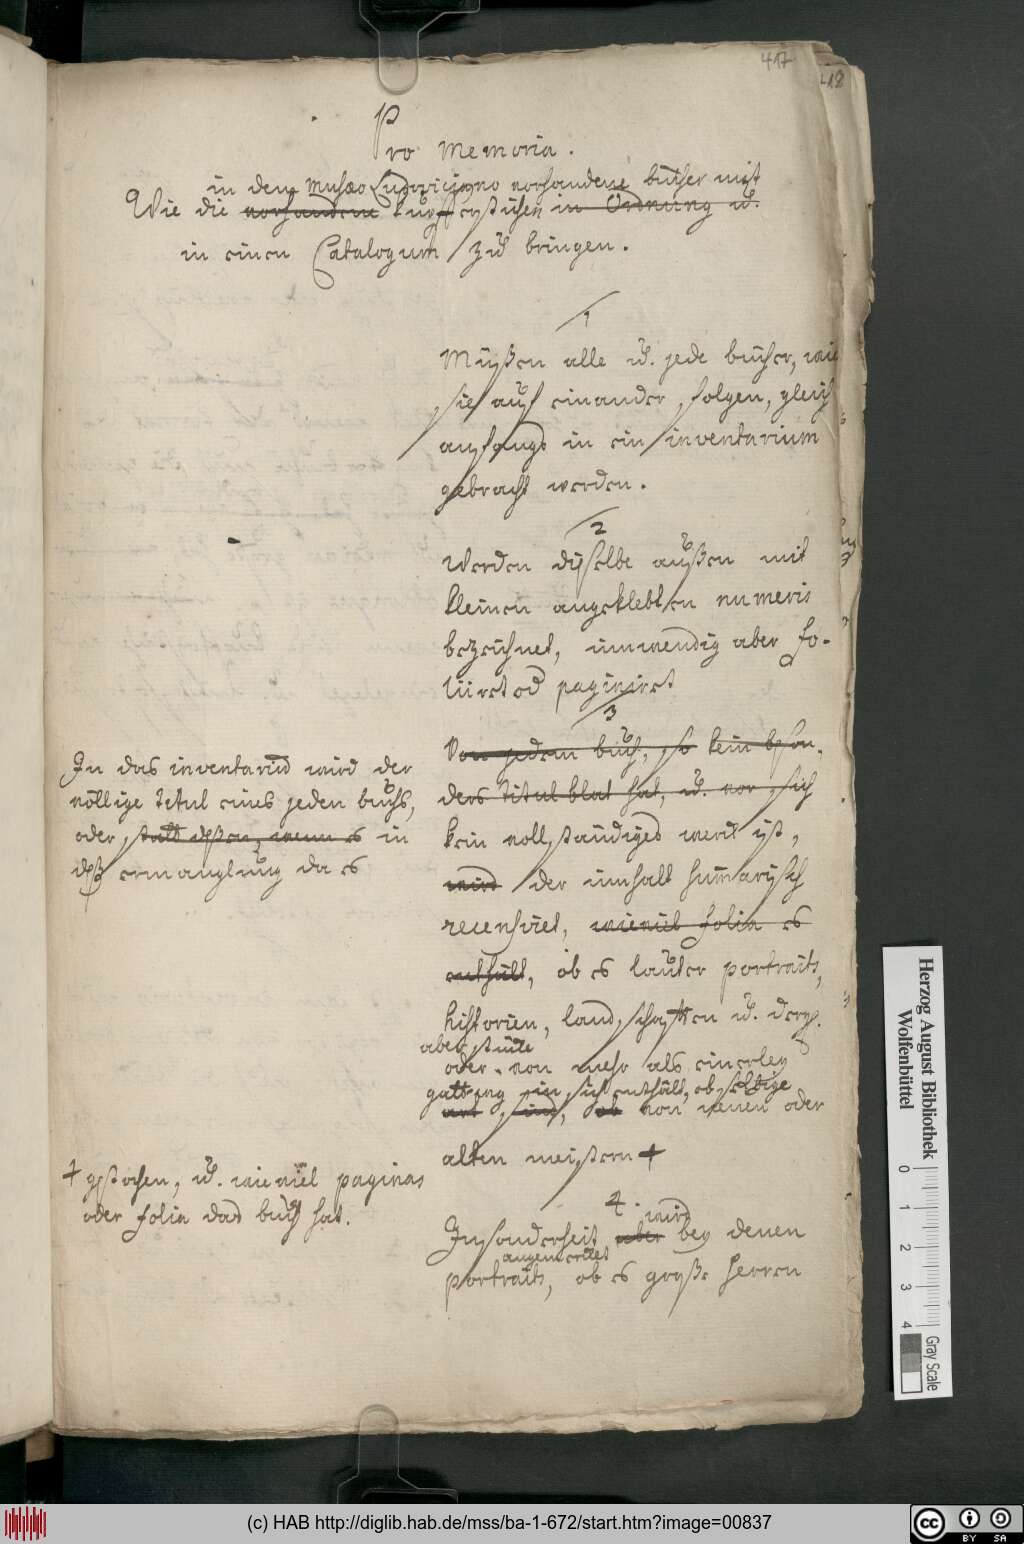 417
418
Pro Memoria.
in dem Musæo Ludoviciano vorhandene bücher mit
Wie die vorhandene Kupfferstichen in Ordnung u.
in einen Catalogum zu bringen.
1
Müßen alle u. jede bücher, wie
sie auf einander folgen, gleich
anfangs in ein inventarium
gebracht werden.
2
Werden dieselbe außen mit
kleinen angeklebten numeris
bezeichnet, innwendig aber fo-
liiret od paginiret
3
Von jedem buch, so kein beson-
ders titul blat hat, u. vor sich
kein vollständiges werck ist,
wird der innhalt summarisch
recensiret, wieviel folia es
enthält, ob es lauter portraits,
historien, landschafften u. derg.
aber stücke
oder von mehr als einerley
gattung in sich enthält, ob selbige
art sind, ob von neuen oder
alten meistern +
4.
wird
Insonderheit aber bey denen
angemercket
portraits, ob es große Herren
In das inventariu wird der
völlige Titul eines jeden buchs,
oder statt deßen, wenn es in
deß ermanglung da es
+ gestochen, u. wie viel paginas
oder folia das buch hat.
Herzog August Bibliothek
Wolfenbüttel
0 1 2 3 4
Gray Scale
(c) HAB http://diglib.hab.de/mss/ba-1-672/start.htm?image=00837
cc BY SA